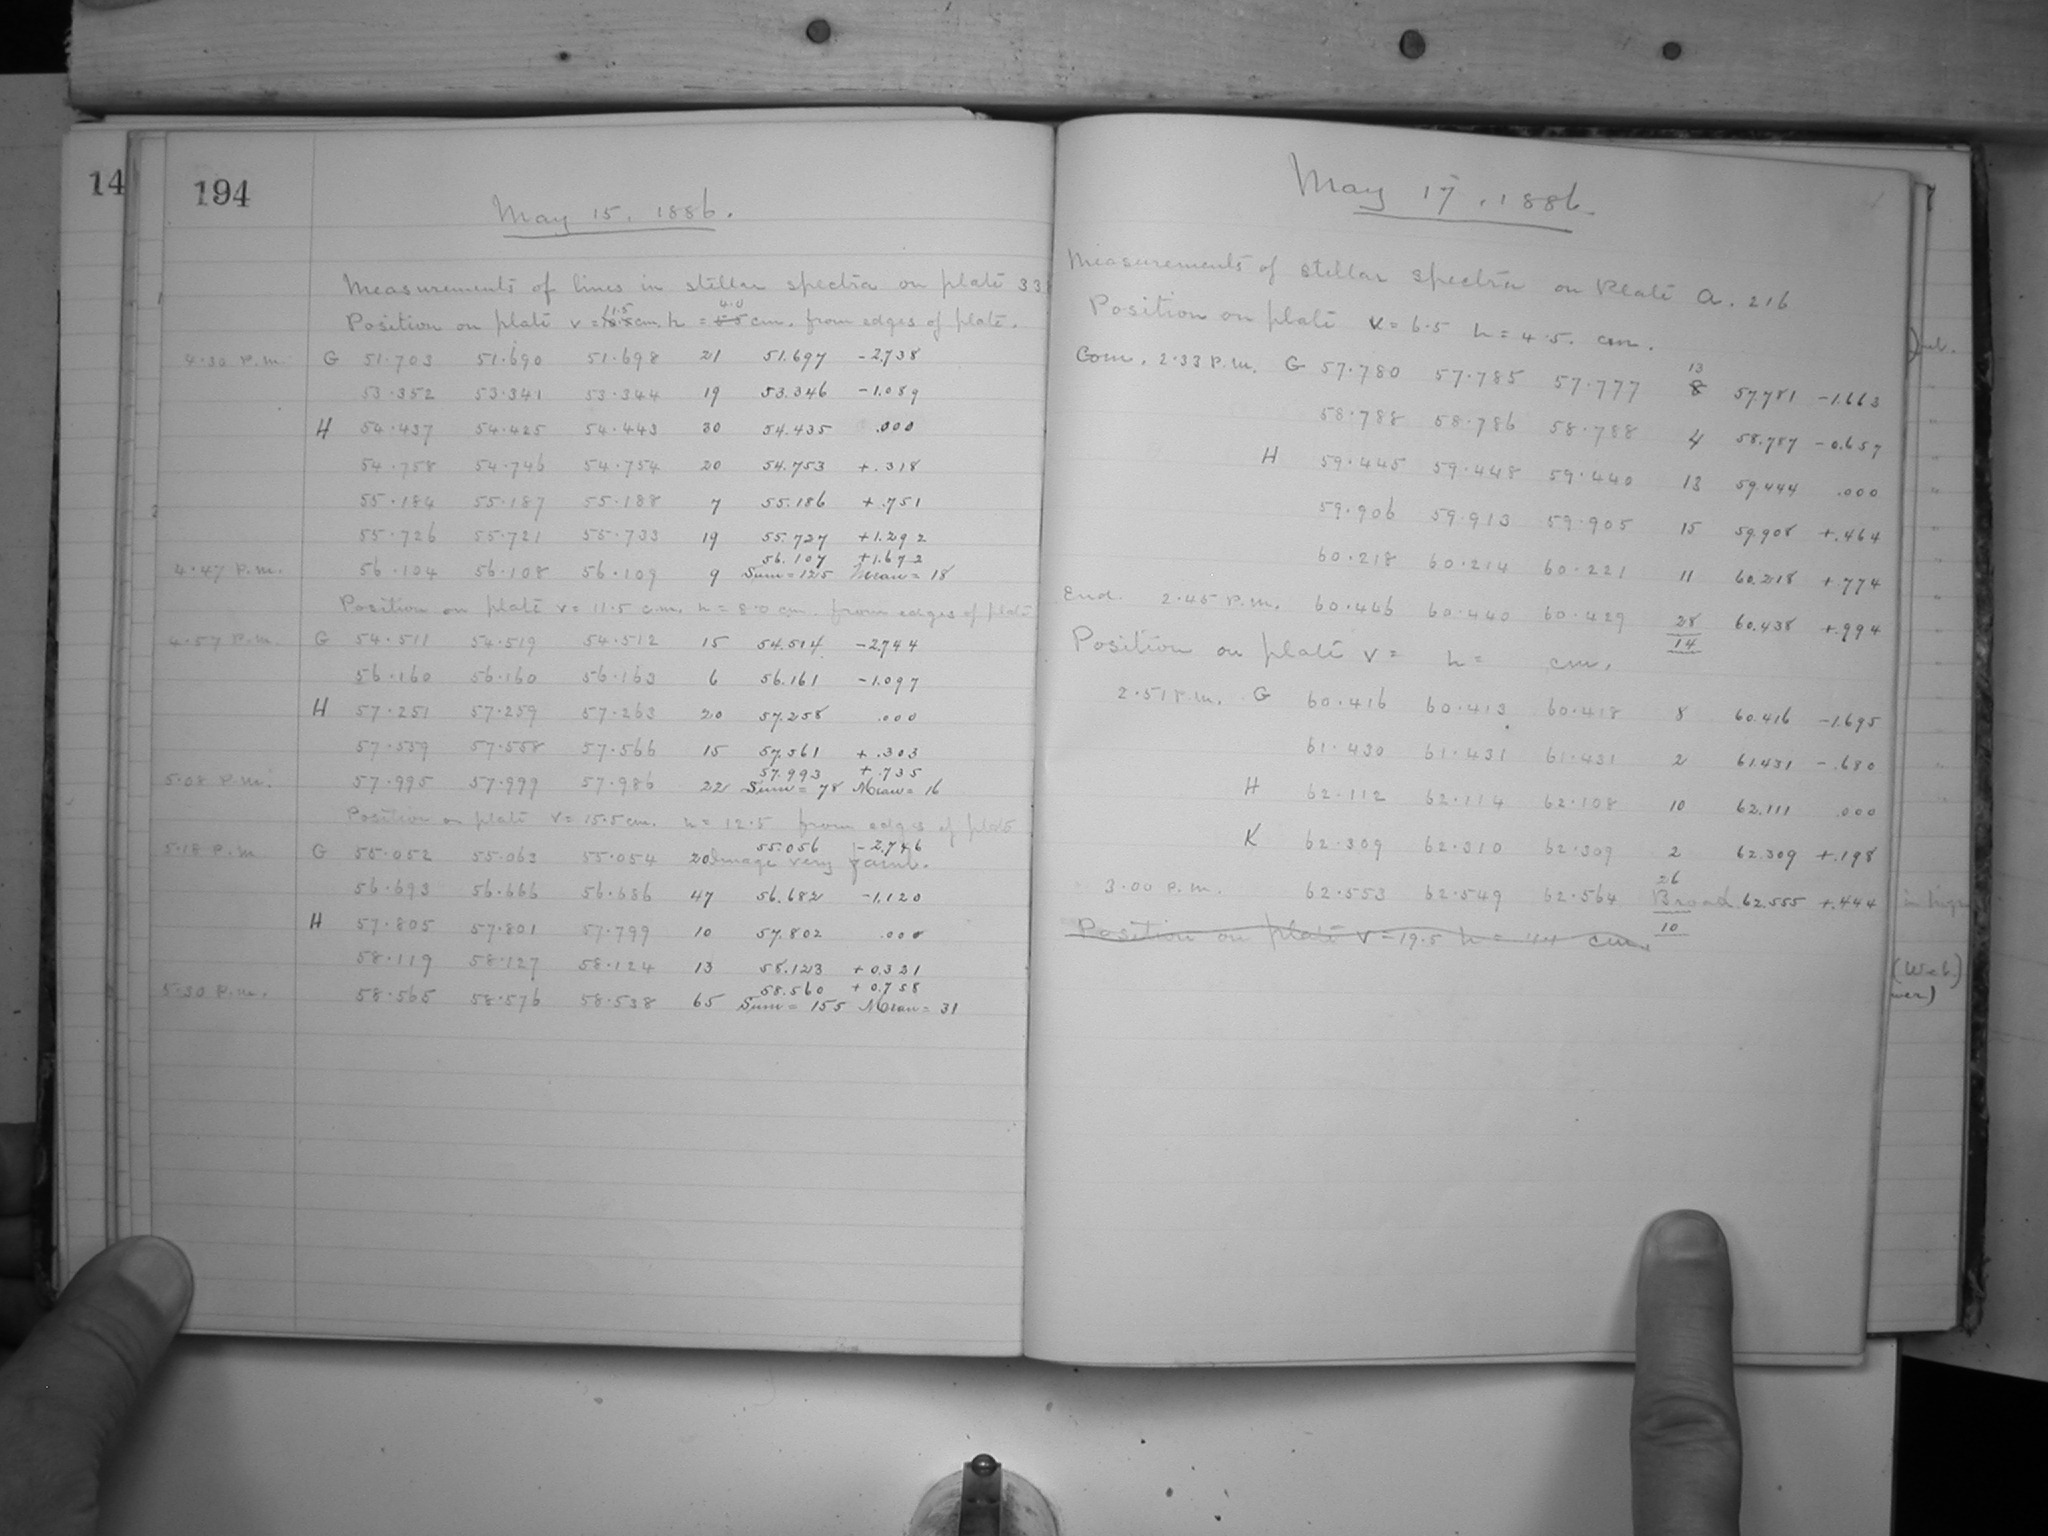 14
194
May 15, 1886.
Measurements of lines in stellar spectra on plate 33
11.5 4.0
Position on plate v = cm. h = cm. from edges of plate.
4.30 P.M. G 51.703 51.690 51.698 21 51.697 -2.738
53.352 53.341 53.344 19 53.346 -1.089
H 54.437 54.425 54.443 30 54.435 .000
54.758 54.746 54.754 20 54.753 +.318
55.184 55.187 55.188 7 55.186 +.751
55.726 55.721 55.733 19 55.727 +1.292
56.107 +1.672
4.47 P.M. 56.104 56.108 56.109 9 Sum = 125 Mean = 18
Position on plate v = 11.5 c.m. h = 8.0 cm. from edges of plate
4.57 P.M. G 54.511 54.519 54.512 15 54.514 -2.744
56.160 56.160 56.163 6 56.161 -1.097
H 57.251 57.259 57.263 20 57.258 .000
57.559 57.558 57.566 15 57.561 +.303
57.993 +.735
5.08 P.M. 57.995 57.999 57.986 22 Sum = 78 Mean = 16
Position on plate v = 15.5 cm. h = 12.5 from edges of plate
55.056 -2.746
5.18 P.M. G 55.052 55.063 55.054 20 Image very faint.
56.693 56.666 56.686 47 56.682 -1.120
H 57.805 57.801 57.799 10 57.802 .000
58.119 58.127 58.124 13 58.123 +0.321
58.560 +0.758
5.30 P.M. 58.565 58.576 58.538 65 Sum = 155 Mean = 31
May 17, 1886.
Measurements of stellar spectra on Plate A. 216
Position on plate v = 6.5 h = 4.5. cm.
13
Com. 2.33 P.M. G 57.780 57.785 57.777 8 57.781 -1.663
58.788 58.786 58.788 4 58.787 -0.657
H 59.445 59.448 59.440 13 59.444 .000
59.906 59.913 59.905 15 59.908 +.464
60.218 60.214 60.221 11 60.218 +.774
End. 2.45 P.M. 60.446 60.440 60.429 28 60.438 +.994
14
Position on plate v = h = cm.
2.51 P.M. G 60.416 60.413 60.418 8 60.416 -1.695
61.430 61.431 61.431 2 61.431 -.680
H 62.112 62.114 62.108 10 62.111 .000
K 62.309 62.310 62.309 2 62.309 +.198
26
3.00 P.M. 62.553 62.549 62.564 Broad. 62.555 +.444
10
Position on plate v = 19.5 h = 4.4 cm.
(Web.)